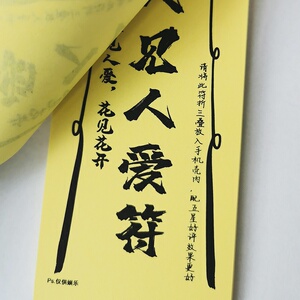 请将此符折三叠放入手机壳内，配五星好评效果更好
见人爱符
见人爱，花见花开
Ps:仅供娱乐